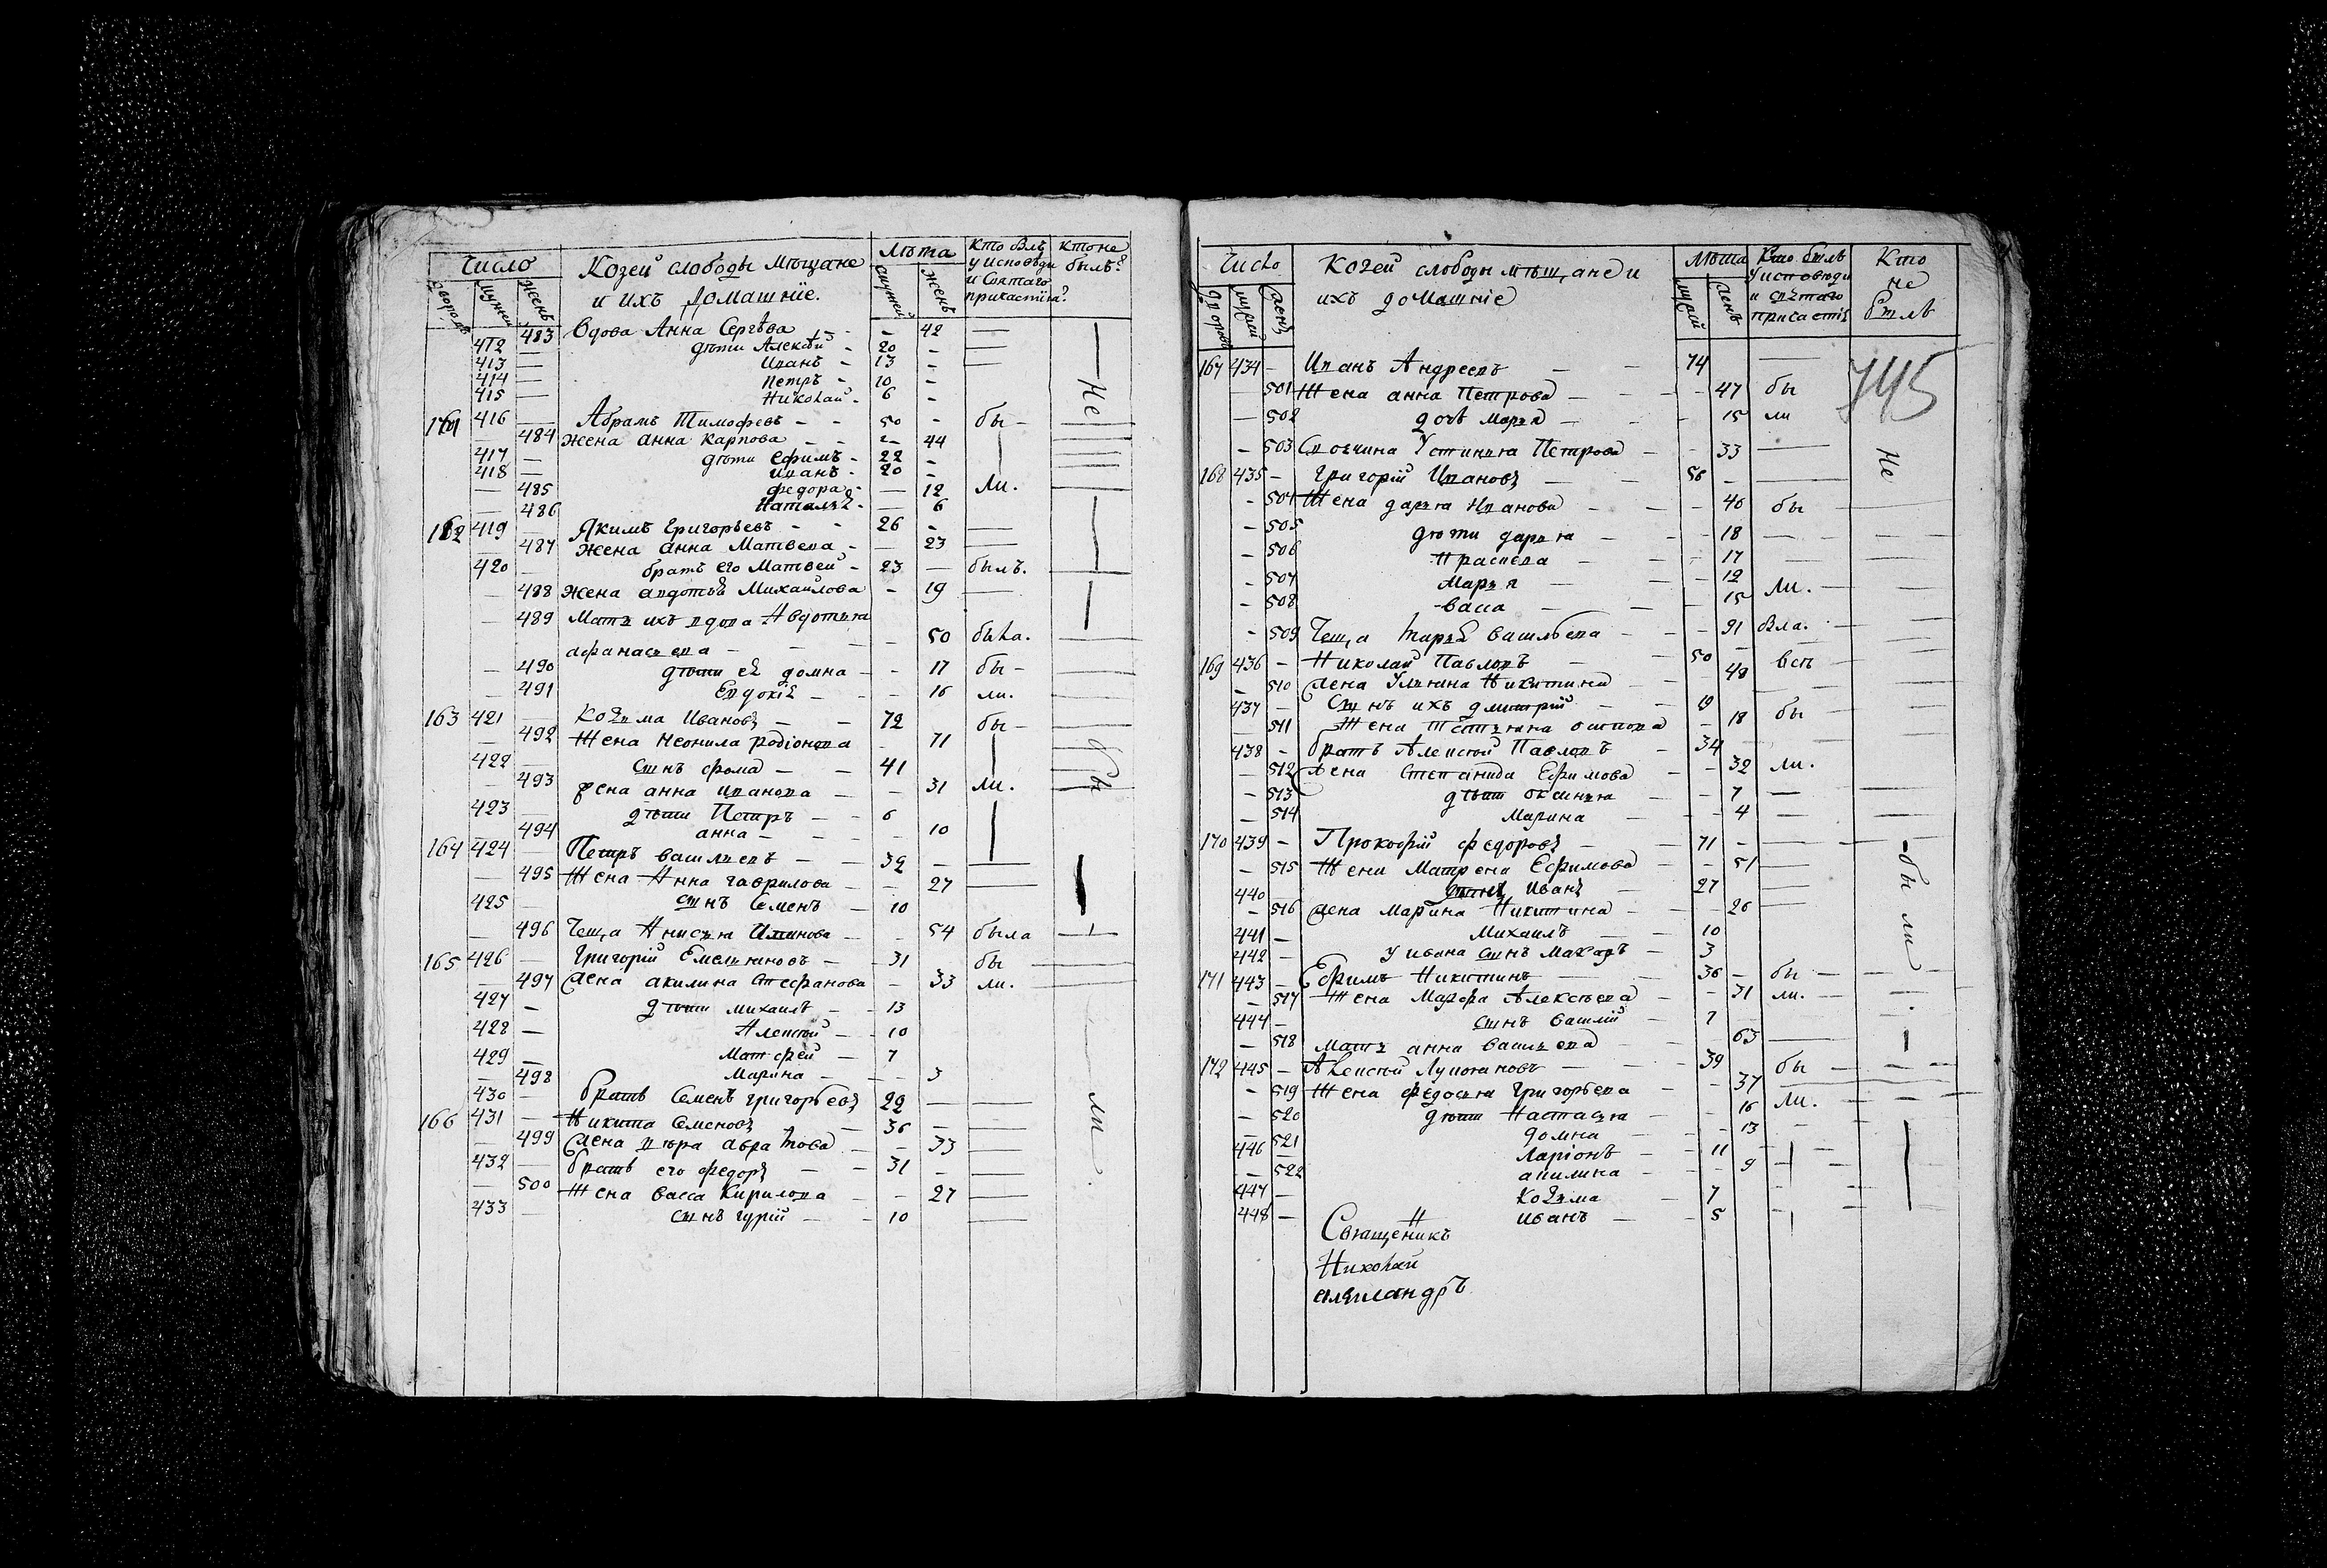 Число
Козей слободы мѣщане
и ихъ домашніе.
Лѣта
кто былъ
у исповѣди
и святаго
причастія?
кто не
былъ?
дворовъ
мужей
женъ
мужей
женъ
483 Вдова Анна Сергѣва - 42
412 — дѣти Алексѣй - 20 -
413 — Иванъ - 13 -
414 — Петръ - 10 -
415 — Николай - 6 -
Не
161 416 — Абрамъ Тимофевъ - - 50 - бы -
— 484 жена анна карпова - - 44
417 — дѣти ефимъ - 22 -
418 — иванъ - 20 -
— 485 федора - — 12 ли.
— 486 Наталья - — 6
162 419 — Якимъ Григорьевъ - - 26 -
— 487 жена анна Матвева - — 23
420 — братъ его Матвей - 23 — былъ.
— 488 жена авдотья Михайлова - 19
— 489 Мать ихъ вдова Авдотья
афанасьева - - - 50 была.
— 490 дѣти ея домна - - 17 бы -
— 491 Евдокія - - - 16 ли.
163 421 — Козьма Ивановъ - - 72 бы -
— 492 Жена Неонила родіонова - 71
422 — сынъ фома - - 41
— 493 жена анна иванова - - 31 ли.
423 — дѣти Петръ - - 6
— 494 анна - - - - 10
бы
164 424 — Петръ васильевъ - - 32 -
— 495 Жена Анна гаврилова - - 27
425 — сынъ Семенъ - 10
— 496 Теща Анисья Иванова - - 54 была
165 426 — Григорій Емельяновъ - - 31 бы
— 497 жена акилина Стефанова - 33 ли.
427 - дѣти михаилъ - - 13
428 — Алексѣй - - 10
429 — Матфей - 7
— 498 Марина - - - 3
430 — братъ Семенъ григорьевъ 22 —
166 431 — Никита Семеновъ - 36 —
— 499 жена вѣра аврамова - - 33
432 — братъ его федоръ - - 31 -
— 500 Жена васса Кирилова - - 27
433 — сынъ гурій - - 10
ли.
Число
Козей слободы мѣщане и
ихъ домашніе
Лѣта
Кто былъ
у исповѣди
и святаго
причастія
Кто
не
былъ
дворовъ
мужей
женъ
мужей
женъ
745
167 434 - Иванъ Андреевъ - - 74
501 Жена анна Петрова - - - 47 бы
— 502 дочь марья - - 15 ли
- 503 Своячина Устинья Петрова - - 33
Не
168 435 - Григорій Ивановъ - - 56 -
- 504 Жена дарья Иванова - - - 40 бы
- 505 дѣти дарья - - - 18
- 506 Прасковья - - - 17
- 507 Марья - - - 12 ли.
- 508 васса - - - 15
- 509 Теща марья васильева - - - 91 была.
169 436 - Николай Павловъ - - 50 всѣ
- 510 жена Ульяна Никитина - - 48
437 - Сынъ ихъ дмитрій - - 19 бы
- 511 Жена Татьяна осипова - 18
438 - братъ Алексѣй Павловъ - 34
- 512 жена Степанида Ефимова - - 32 ли.
- 513 дѣти оксинья - - 7
- 514 Марина - - - 4
170 439 - Прокофій федоровъ - - 71 -
- 515 Жена Матрена Ефимова - - 51
440 сынъ Иванъ - 27
- 516 жена Марина Никитина - - - 26
441 - Михаилъ - - 10
442 - у ивана сынъ Макаръ - 3
бы
ли
171 443 - Ефимъ Никитинъ - - 36 - бы
- 517 Жена Марфа Алексѣева - - 31 ли.
444 - сынъ василій - 7
- 518 мать анна васильева - - 63
172 445 - Алексѣй Лукояновъ - - 39 бы
- 519 Жена федосья Григорьева - - 37 ли.
- 520 дѣти Настасья - - - 16
— 521 домна - - - 13
446 — Ларіонъ - - 11
- 522 акилина - - - 9
447 — Козьма - 7
448 — иванъ - - 5
Священикъ
Николай
александръ